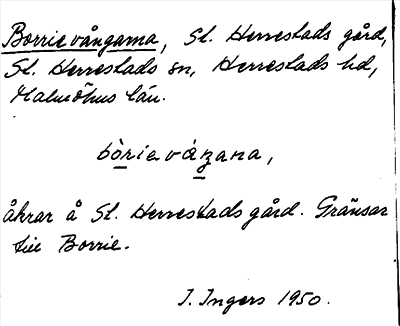 Borrievångarna, St. Herrestads gård,
St. Herrestads sn, Herrestads hd,
Malmöhus län.
bòrievàŋana,
åkrar å St. Herrestads gård. Gränsar
till Borrie.
I. Ingers 1950.